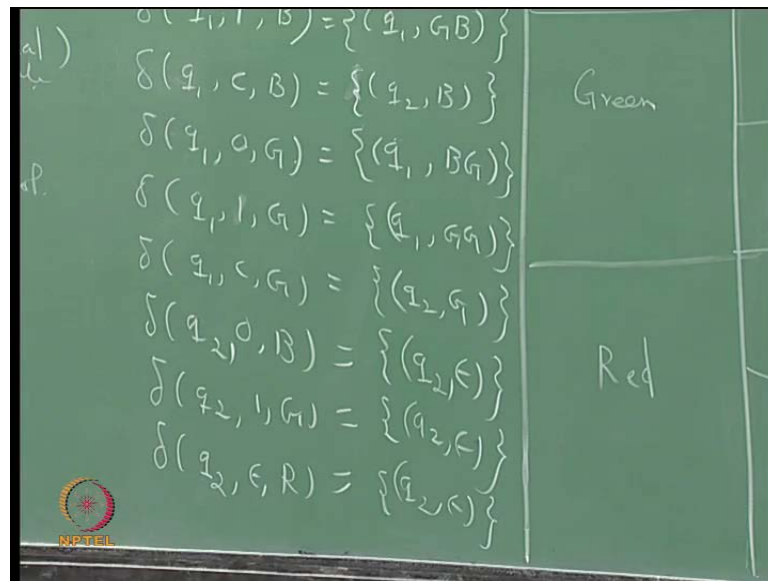 δ(q₁, 1, B) = {(q₁, GB)}
δ(q₁, c, B) = {(q₂, B)}
δ(q₁, 0, G) = {(q₁, BG)}
δ(q₁, 1, G) = {(q₁, GG)}
δ(q₁, c, G) = {(q₂, G)}
δ(q₂, 0, B) = {(q₂, ϵ)}
δ(q₂, 1, G) = {(q₂, ϵ)}
δ(q₂, ϵ, R) = {(q₂, ϵ)}
Green
Red
NPTEL